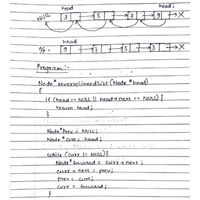 head head;
NULL 3 5 7 9 X
head
O/P = 9 7 5 3 X
Program :-
Node* reverseLinkedList (Node *head)
{
if (head == NULL || head → next == NULL) {
return head;
}
Node* prev = NULL;
Node* curr = head;
while (curr != NULL) {
Node* forward = curr → next ;
curr → next = prev;
prev = curr;
curr = forward;
}